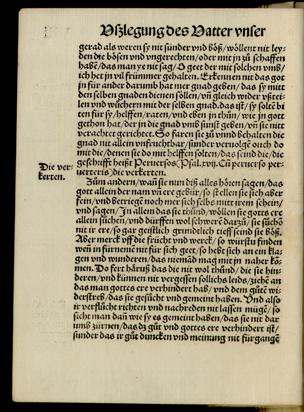 Vßlegung des Vatter vnser
gerad als weren sy nit sünder vnd böß/ wöllent nit ley-
den die bösen vnd vngerechten/ oder mit jn zů schaffen
habē/ das man ye nit sag/ O geet der mit solchen vmb/
ich het jn vil frümmer gehalten. Erkennen nit das got
jn für ander darumb hat mit gnad gebē/ das sy mit
den selben gnaden dienen sollen/
len vnd wůchern mit der selben gnad. das ist/ sy soltē bi
ten für sy/ helffen/ raten/ vnd eben jn thůn/ wie jn gott
gethon hat/ der jn die gnad vmb sunst gebē/ vñ sie nit
verachtet gerichtet. So faren sie zů vnnd behalten die
gnad nit allein vnfruchtbar/ sünder veruolgē ouch do
mit die/ denen sie do mit helffen solten/ das seind die/ die
geschrifft heißt Peruersos/ Psal. xvij. Cū peruerso per-
uerteris/ die verkerten.
Die ver-
kerten.
Zům andern/ wañ sie nun diß alles hörēt sagen/ das
gott allein der nam vñ ere gebür/ so stellen sie sich aber
fein/ vnd betriegē noch mer sich selbs mitt irem schein/
vnd sagen/ In allem das sie thůnd/ wöllen sie gotts ere
allein sůchen/ vnd dürffen wol schwerē darzů/ sie sůchē
nit ir ere/ so gar geistlich gründtlich tieff seind sie böß.
Aber merck vff die frücht vnd werck/ so würstu finden
weñ in fürnemē nit für sich geet/ so hebt sich an ein kla-
gen vnd wunderen/ das niemād mag mit jn naher kō-
men. Do fert häruß das die nit wol thůnd/ die sie hin-
deren/ vnd künnen nit vergessen sollichs leids/ ziehē an
das man gottes ere verhindert hab/ vnd dem gůtē wi-
derstreb/ das sie gesůcht vnd gemeint haben. Vnd also
ir verflůcht richten vnd nachreden nit lassen mügē/ so
sicht man dañ wie sy es gemeint haben/ das sie nit dar
umb zürnen/ das dz gůt vnd gottes ere verhindert ist/
sünder das ir gůt duncken vnd meinung nit fürgangē